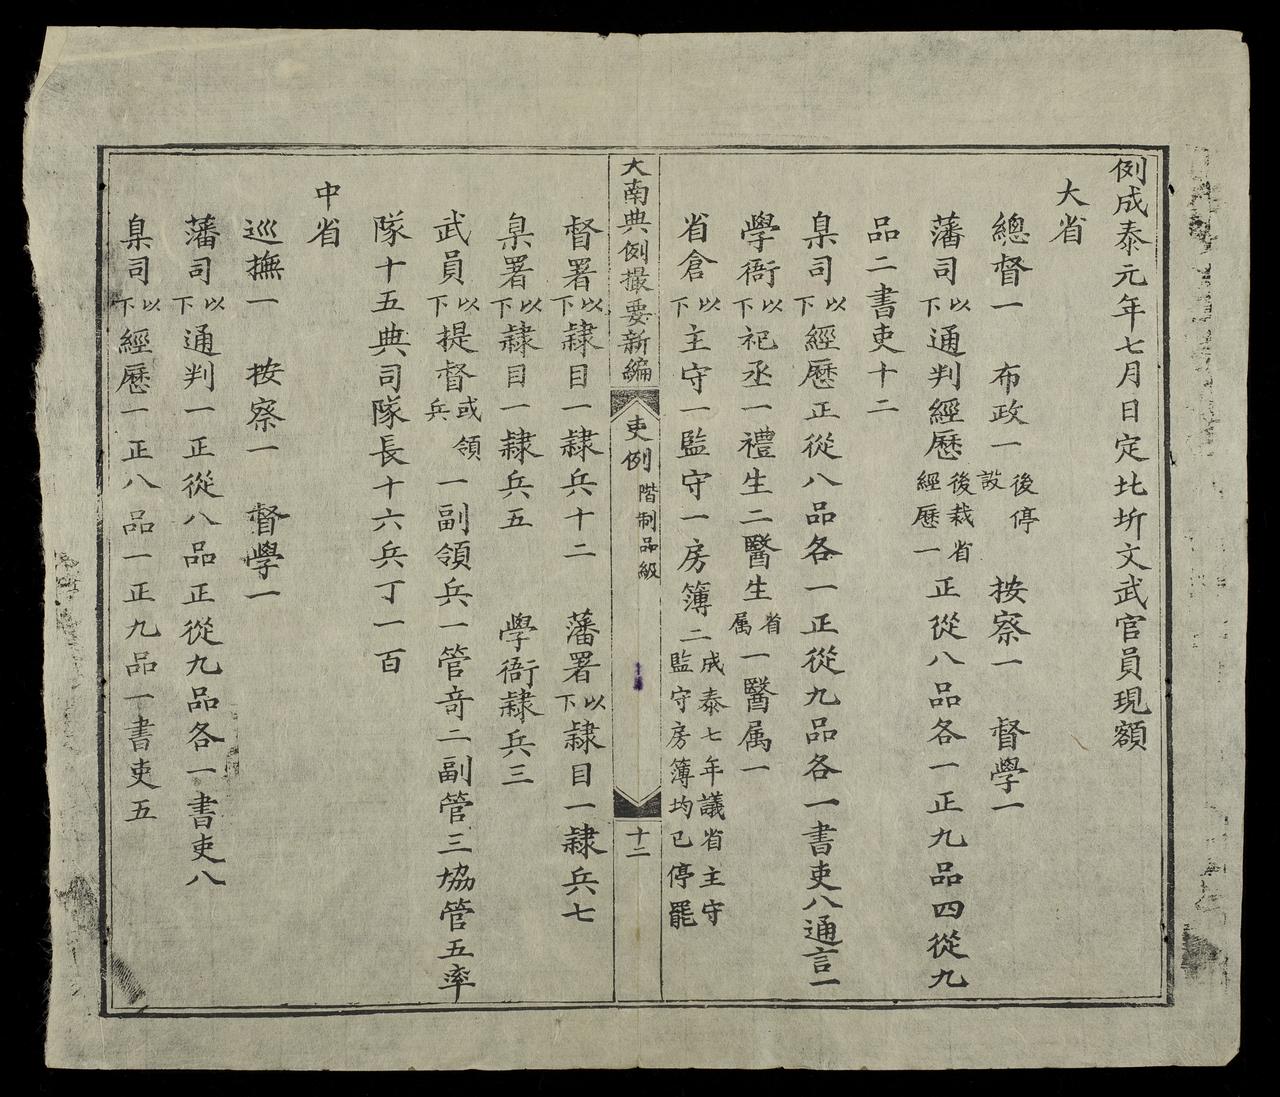 例成泰元年七月日定北圻文武官員現額
大省
總督一 布政一 後停設 按察一 督學一
藩司以下通判經歷 後裁省經歷一 正從八品各一正九品四從九
品二書吏十二
臬司以下經歷正從八品各一正從九品各一書吏八通言一
學衙以下祀丞一禮生二醫生省属一醫属一
省倉以下主守一監守一房簿二 成泰七年議省主守監守房簿均已停罷
大南典例撮要新編 吏例 階制品級 十二
督署以下隷目一隷兵十二 藩署以下隷目一隷兵七
臬署以下隷目一隷兵五 學衙隷兵三
武員以下提督或領兵一副領兵一管奇二副管三協管五率
隊十五典司隊長十六兵丁一百
中省
巡撫一 按察一 督學一
藩司以下通判一正從八品正從九品各一書吏八
臬司以下經歷一正八品一正九品一書吏五